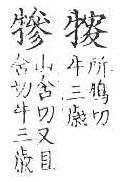 所鳩切
牛三歲
犙
山含切又且
含切牛三歲